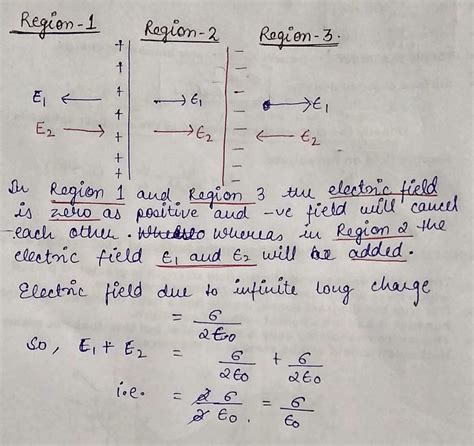 Region-1 Region-2 Region-3.
E1 ← → E1 → E1
E2 → → E2 ← E2
In Region 1 and Region 3 the electric field
is zero as positive and -ve field will cancel
each other. whereas in Region 2 the
electric field E1 and E2 will be added.
Electric field due to infinite long charge
= σ/2ε0
So, E1 + E2 = σ/2ε0 + σ/2ε0
i.e. = 2σ/2ε0 = σ/ε0